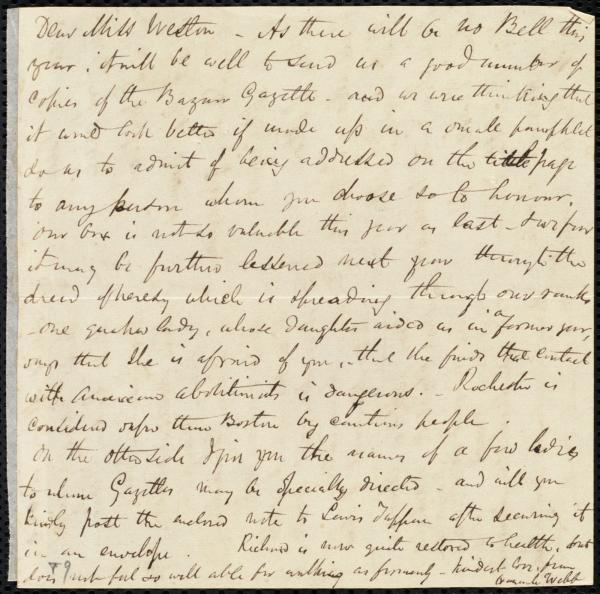 Dear Miss Weston - As there will be no Bell this
year, it will be well to send us a good number of
copies of the Bazaar Gazette - and we were thinking that
it would look better if made up in a small pamphlet
so as to admit of being addressed on the title page
to any person whom you choose so to honour.
Our box is not so valuable this year as last - & we fear
it may be further lessened next year through the
dread of heresy which is spreading through our ranks
- one quaker lady, whose daughter aided us in a former year,
says that she is afraid of you, - that she finds that contact
with American abolitionists is dangerous. - Rochester is
considered safer than Boston by cautious people.
On the other side I give you the names of a few ladies
to whom Gazettes may be specially directed - and will you
kindly post the enclosed note to Lewis Tappan after securing it
in an envelope. Richard is now quite restored to health, but
does not feel so well able for walking as formerly - kindest love, from
Hannah Webb
T9